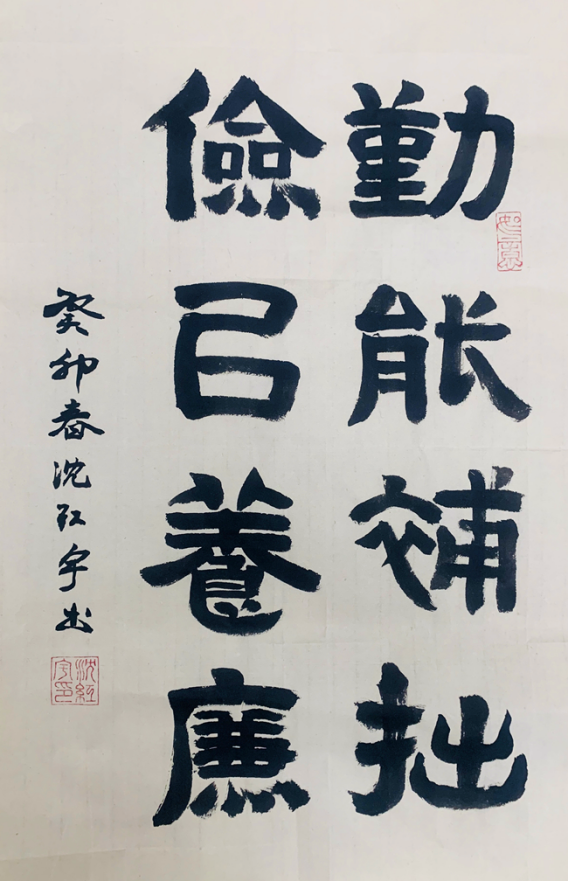 勤能補拙
儉㠯養廉
癸卯春沈红宇书
沈紅宇印